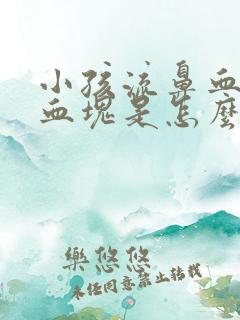 小孩流鼻血
血塊是怎麼
樂悠悠
未经同意禁止转载